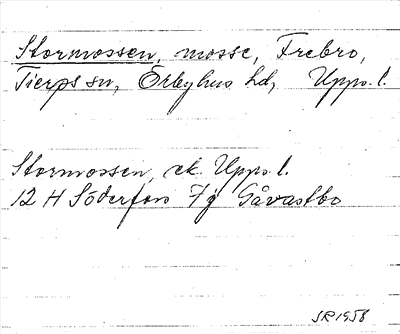 Stormossen, mosse, Frebro,
Tierps sn, Örbyhus hd, Upps. l.
Stormossen, ek. Upps. l.
12 H Söderfors 7 g Gåvastbo
SR 1958